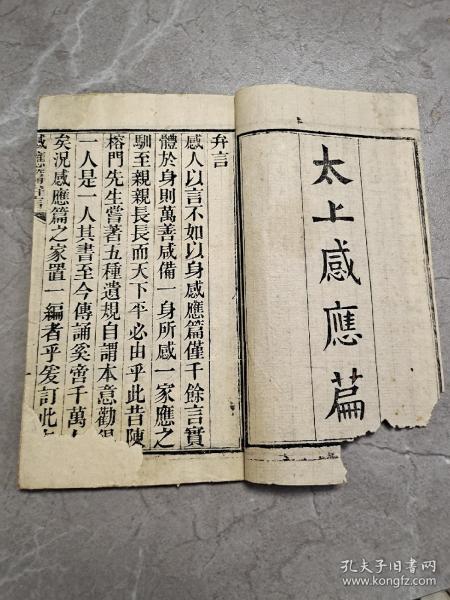 太上感應篇
弁言
感人以言不如以身感應篇僅千餘言實
體於身則萬善咸備一身所感一家應之
馴至親親長長而天下平必由乎此昔陳
榕門先生嘗著五種遺規自謂本意勸得
一人是一人其書至今傳誦奚啻千萬
矣況感應篇之家置一編者乎爰訂此
感應篇弁言
孔夫子旧书网
www.kongfz.com